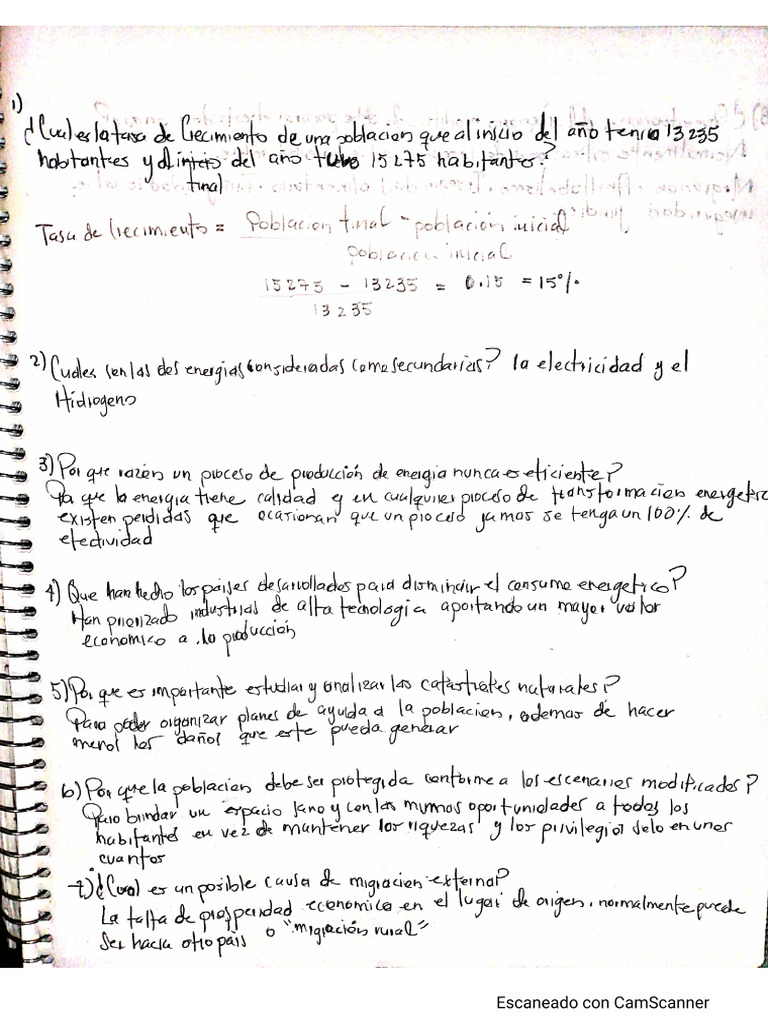 1)
¿Cual es la tasa de Crecimiento de una poblacion que al inicio del año tenia 13235
habitantes y al inicio del año tuvo 15275 habitantes?
final
Tasa de Crecimiento = Poblacion final - poblacion inicial
poblacion inicial
15275 - 13235 = 0.15 = 15%
13235
2) Cuales son las dos energias consideradas como secundarias? la electricidad y el
Hidrogeno
3) Por que razón un proceso de producción de energia nunca es eficiente?
Ya que la energia tiene calidad y en cualquier proceso de transformacion energetica
existen perdidas que ocasionan que un proceso jamas se tenga un 100% de
efectividad
4) Que han hecho los paises desarrollados para disminuir el consumo energetico?
Han priorizado industrias de alta tecnologia aportando un mayor valor
economico a la producción
5) Por que es importante estudiar y analizar las catastrofes naturales?
Para poder organizar planes de ayuda a la poblacion, ademas de hacer
menol los dañol que este pueda generar
6) Por que la poblacion debe ser protegida conforme a los escenarios modificados?
Para brindar un espacio sano y con las mismas oportunidades a todos los
habitantes en vez de mantener las riquezas y los privilegios solo en unos
cuantos
7) ¿Cual es un posible causa de migracion externa?
La falta de prosperidad economica en el lugar de origen, normalmente puede
ser hacia otro pais o "migración rural"
Escaneado con CamScanner